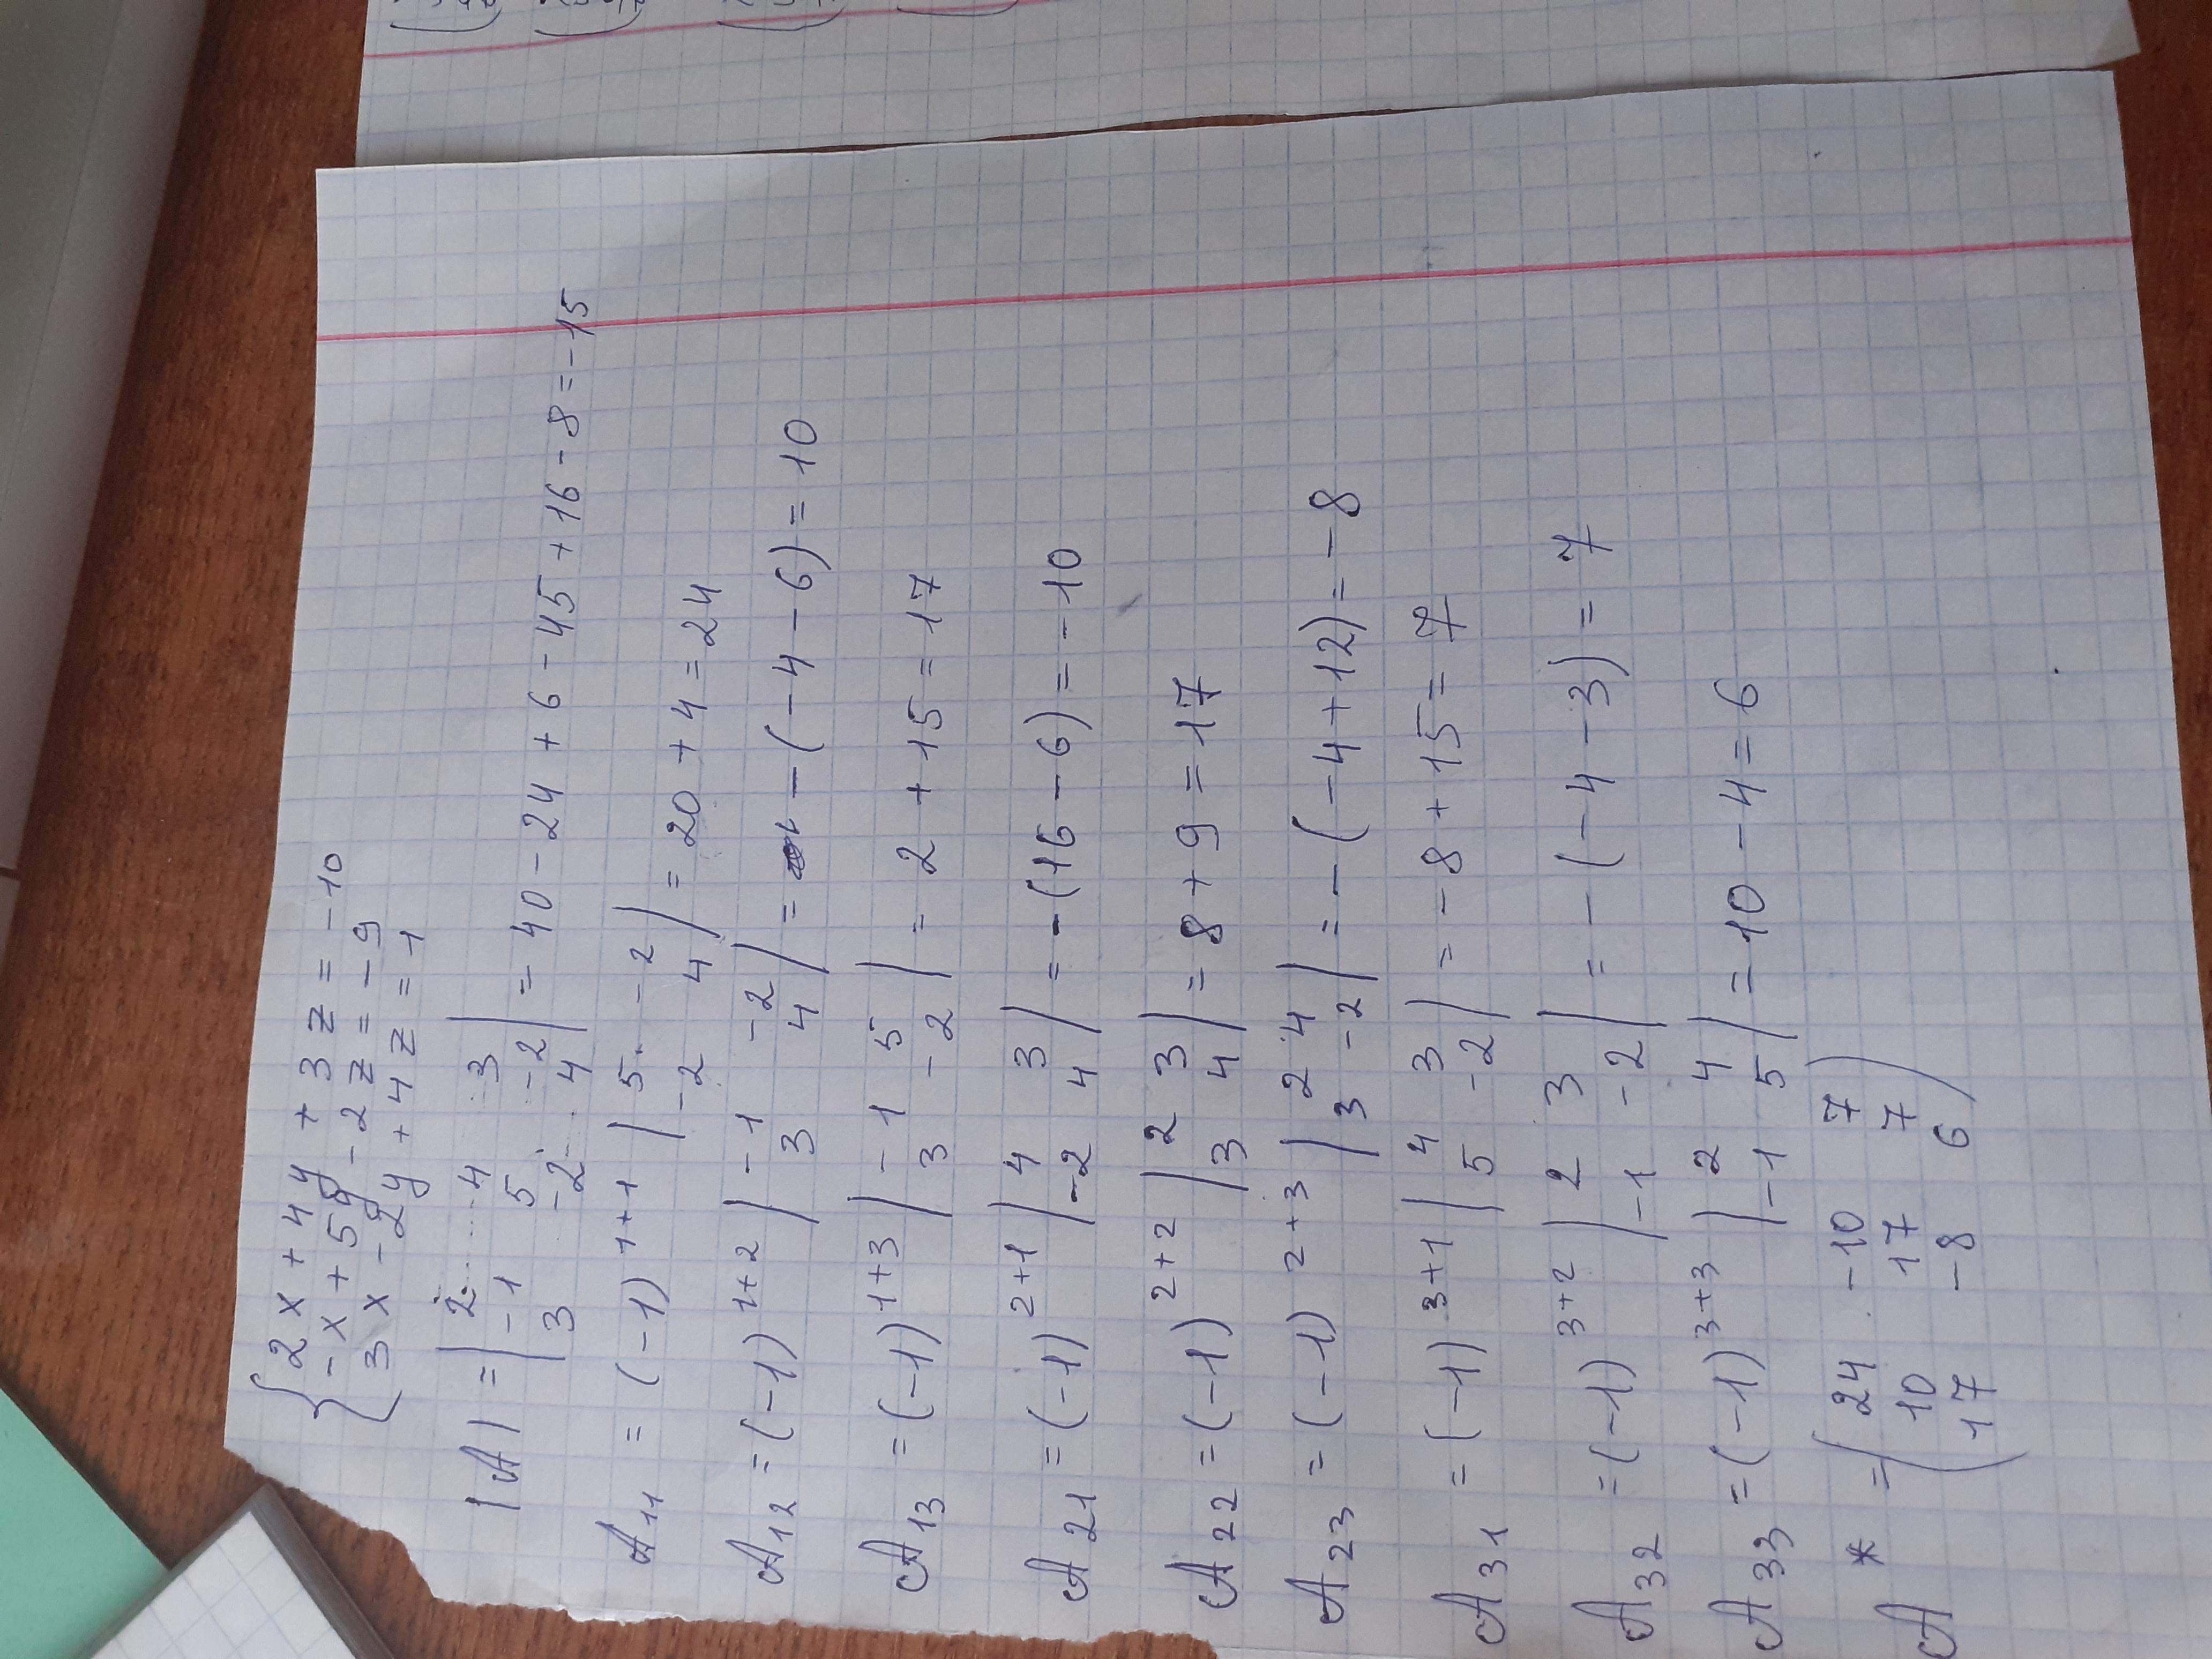 2x + 4y + 3z = -10
-x + 5y - 2z = -9
3x - 2y + 4z = -1
|A| = |2 4 3
-1 5 -2| = 40 - 24 + 6 - 45 + 16 - 8 = -15
3 -2 4
A11 = (-1)^1+1 |5 -2
-2 4| = 20 + 4 = 24
A12 = (-1)^1+2 |-1 -2
3 4| = -(-4-6) = 10
A13 = (-1)^1+3 |-1 5
3 -2| = 2 + 15 = 17
A21 = (-1)^2+1 |4 3
-2 4| = -(16-6) = -10
A22 = (-1)^2+2 |2 3
3 4| = 8 + 9 = 17
A23 = (-1)^2+3 |2 4
3 -2| = -(-4+12) = -8
A31 = (-1)^3+1 |4 3
5 -2| = -8 + 15 = 7
A32 = (-1)^3+2 |2 3
-1 -2| = -(-4-3) = 7
A33 = (-1)^3+3 |2 4
-1 5| = 10 - 4 = 6
A* = (24 -10 7
10 17 7
17 -8 6)